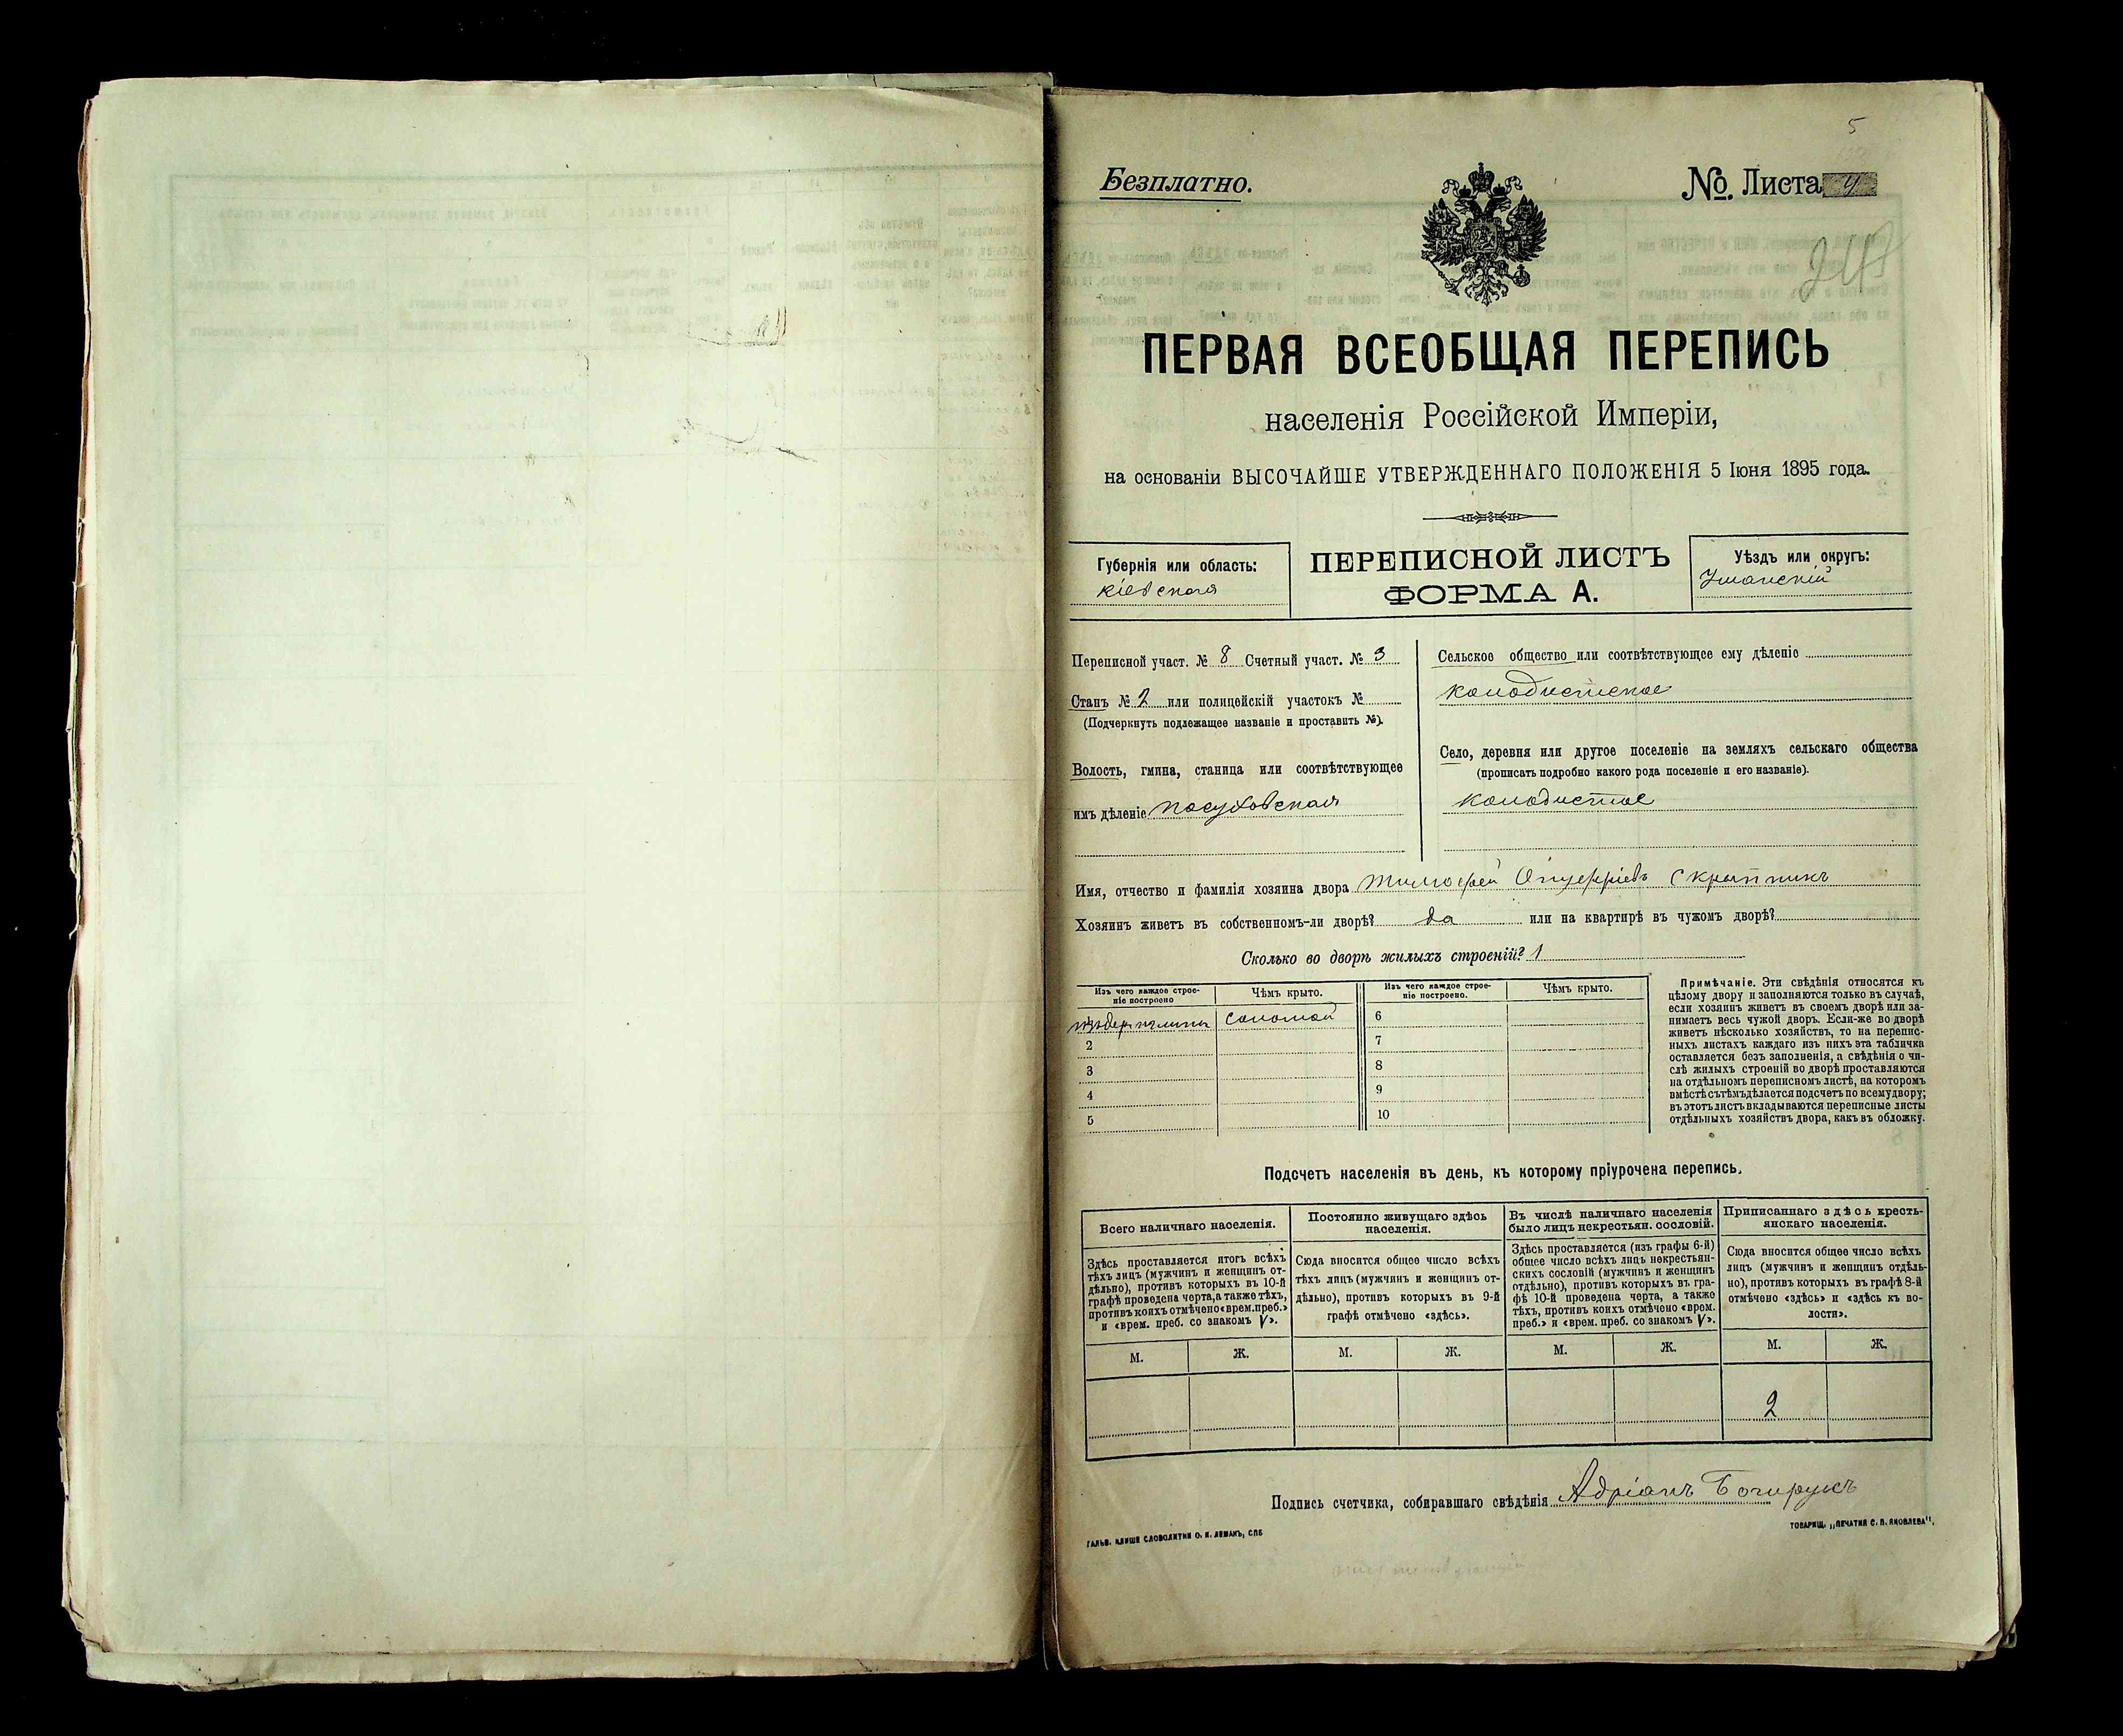 5
Безплатно.
№. Листа 4
ПЕРВАЯ ВСЕОБЩАЯ ПЕРЕПИСЬ
населенія Россійской Имперіи,
на основаніи ВЫСОЧАЙШЕ УТВЕРЖДЕННАГО ПОЛОЖЕНІЯ 5 Іюня 1895 года.
Губернія или область:
Кіевская
ПЕРЕПИСНОЙ ЛИСТЪ
ФОРМА А.
Уѣздъ или округъ:
Уманскій
Переписной участ. № 8 Счетный участ. № 3
Станъ № 2 или полицейскій участокъ №
(Подчеркнуть подлежащее названіе и проставить №).
Волость, гмина, станица или соотвѣтствующее
имъ дѣленіе Посуховская
Сельское общество или соотвѣтствующее ему дѣленіе
Колодистское
Село, деревня или другое поселеніе на земляхъ сельскаго общества
(прописать подробно какого рода поселеніе и его названіе).
Колодистое
Имя, отчество и фамилія хозяина двора Тимофей Онуфріевъ Скрыпникъ
Хозяинъ живетъ въ собственномъ-ли дворѣ? да или на квартирѣ въ чужомъ дворѣ?
Сколько во дворѣ жилыхъ строеній? 1
Изъ чего каждое строе-
ніе построено
Чѣмъ крыто.
Изъ чего каждое строе-
ніе построено.
Чѣмъ крыто.
соломой
6
2
7
3
8
4
9
5
10
Примѣчаніе. Эти свѣдѣнія относятся къ
цѣлому двору и заполняются только въ случаѣ,
если хозяинъ живетъ въ своемъ дворѣ или за-
нимаетъ весь чужой дворъ. Если-же во дворѣ
живетъ нѣсколько хозяйствъ, то на перепис-
ныхъ листахъ каждаго изъ нихъ эта табличка
оставляется безъ заполненія, а свѣдѣнія о чи-
слѣ жилыхъ строеній во дворѣ проставляются
на отдѣльномъ переписномъ листѣ, на которомъ
вмѣстѣ съ тѣмъ дѣлается подсчетъ по всему двору;
въ этотъ листъ вкладываются переписные листы
отдѣльныхъ хозяйствъ двора, какъ въ обложку.
Подсчетъ населенія въ день, къ которому пріурочена перепись.
Всего наличнаго населенія.
Здѣсь проставляется итогъ всѣхъ
тѣхъ лицъ (мужчинъ и женщинъ от-
дѣльно), противъ которыхъ въ 10-й
графѣ проведена черта, а также тѣхъ,
противъ коихъ отмѣчено «врем. преб.»
и «врем. преб. со знакомъ V».
Постоянно живущаго здѣсь
населенія.
Сюда вносится общее число всѣхъ
тѣхъ лицъ (мужчинъ и женщинъ от-
дѣльно), противъ которыхъ въ 9-й
графѣ отмѣчено «здѣсь».
Въ числѣ наличнаго населенія
было лицъ некрестьян. сословій.
Здѣсь проставляется (изъ графы 6-й)
общее число всѣхъ лицъ некрестьян-
скихъ сословій (мужчинъ и женщинъ
отдѣльно), противъ которыхъ въ гра-
фѣ 10-й проведена черта, а также
тѣхъ, противъ коихъ отмѣчено «врем.
преб.» и «врем. преб. со знакомъ V».
Приписаннаго здѣсь кресть-
янскаго населенія.
Сюда вносится общее число всѣхъ
лицъ (мужчинъ и женщинъ отдѣль-
но), противъ которыхъ въ графѣ 8-й
отмѣчено «здѣсь» и «здѣсь къ во-
лости».
М. Ж. М. Ж. М. Ж. М. Ж.
2
Подпись счетчика, собиравшаго свѣдѣнія Адріанъ
ГАЛЬВ. КЛИШЕ СЛОВОЛИТНИ О. И. ЛЕМАНЪ, СПБ
ТОВАРИЩ. „ПЕЧАТНЯ С. П. ЯКОВЛЕВА".